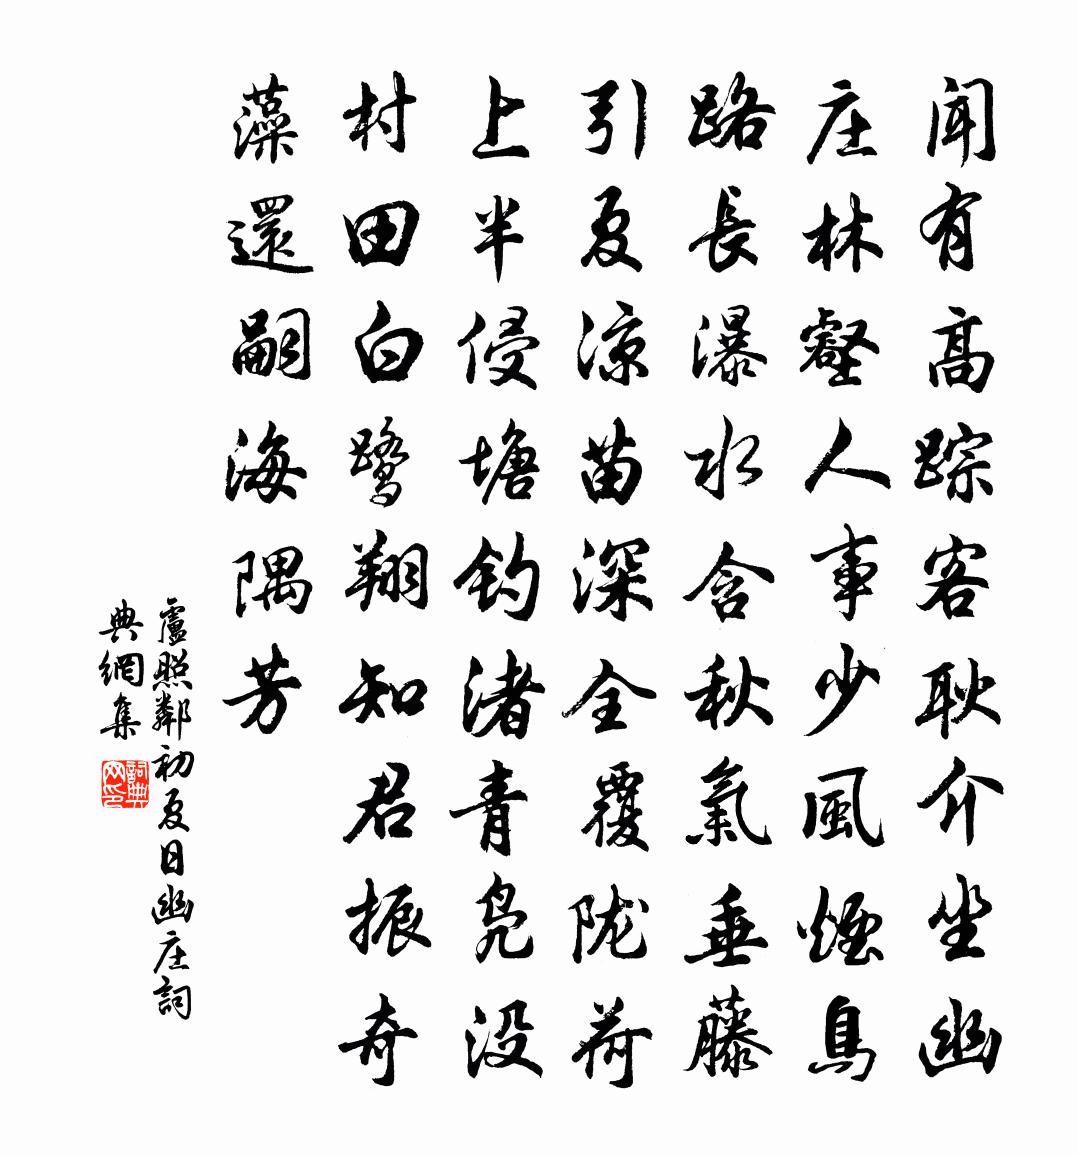 聞有高踪客耿介坐幽
庄林壑人事少風煙鳥
路長瀑水含秋氣垂藤
引夏涼苗深全覆陇荷
上半侵塘钓渚青凫没
村田白鹭翔知君振奇
藻還嗣海隅芳
盧照鄰初夏日幽庄詞
典網集
詞典网印